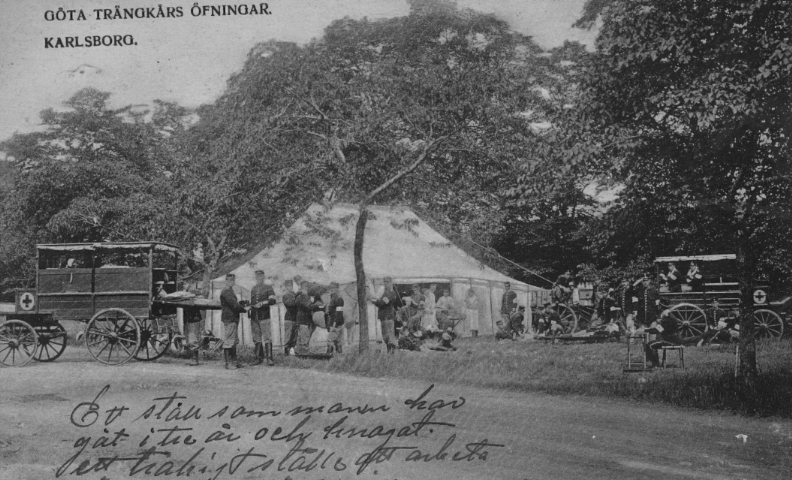 GÖTA TRÄNGKÅRS ÖFNINGAR.
KARLSBORG.
Ett ställ som mann har
gåt i tre år och knogat.
ett trakigt ställe att arbeta